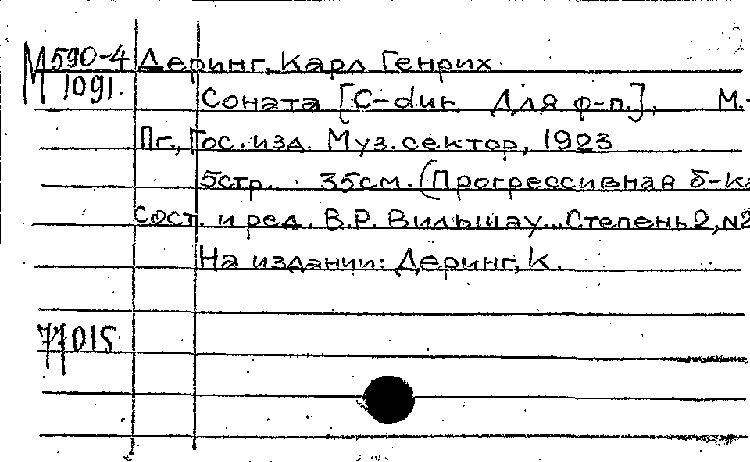 М 590-4 Деринг, Карл Генрих
1091. Соната [C-dur. Для ф-п.], М.-
Пг., Гос. изд. Муз. сектор, 1923
5стр. 35см. (Прогрессивная б-ка
Сост. и ред. В.Р. Вильшау. Степень 2, №2
На издании: Деринг, К.
015